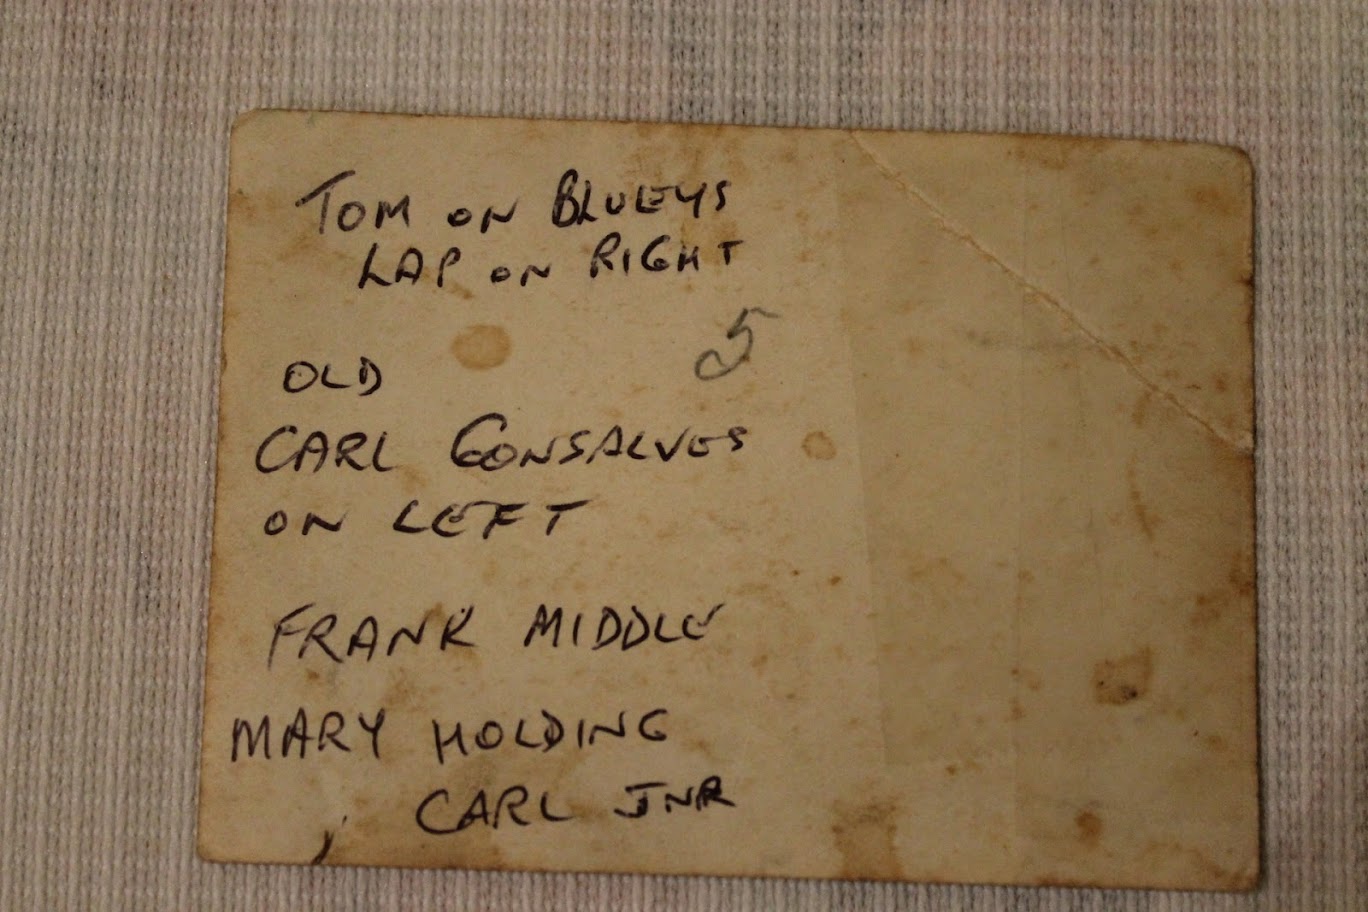 TOM ON BLUEYS
LAP ON RIGHT
5
OLD
CARL GONSALVES
ON LEFT
FRANK MIDDLE
MARY HOLDING
CARL JNR